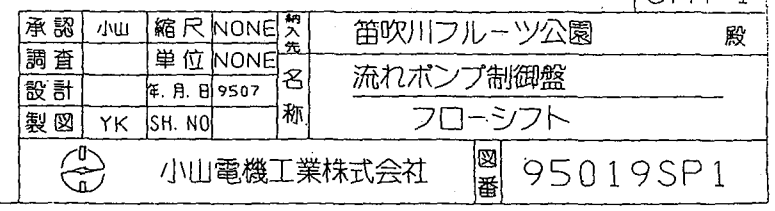 承認 小山 縮尺 NONE 納入先 笛吹川フルーツ公園 殿
調査 単位 NONE 名称 流れポンプ制御盤
設計 年.月.日 9507
製図 YK SH. NO フローシフト
小山電機工業株式会社 図番 95019SP1